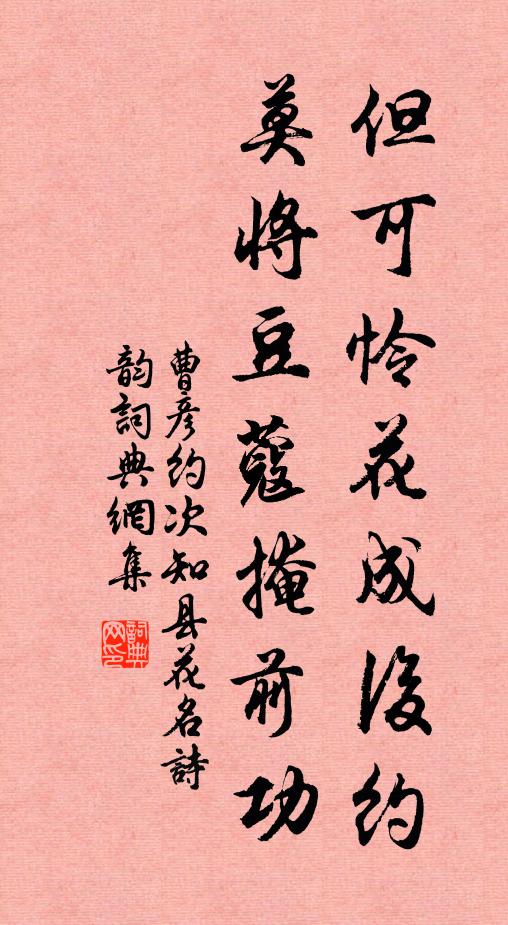 但可怜花成後约
莫將豆蔻掩前功
曹彦约次知县花名詩
韵詞典網集
詞典网印